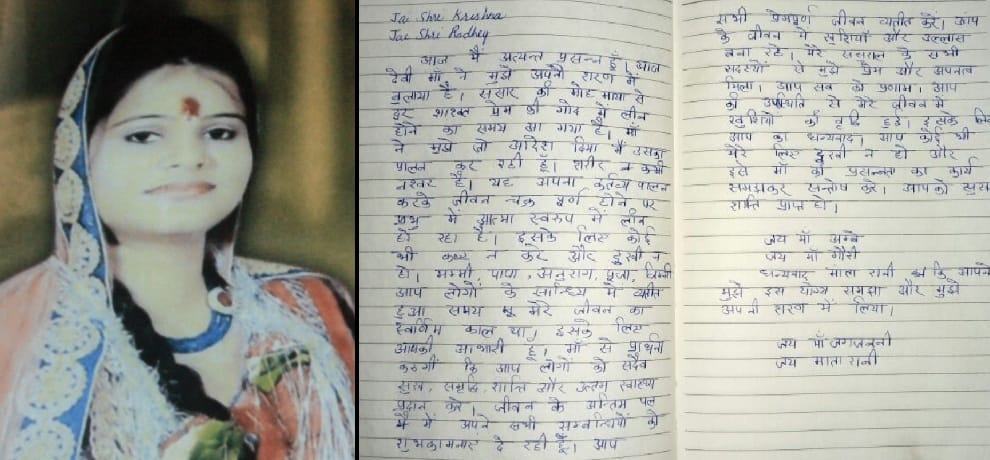 Jai Shri Krishna
Jai Shri Radhey
आज मैं अत्यन्त प्रसन्न हूँ। आज
देवी माँ ने मुझे अपनी शरण में
बुलाया है। संसार की मोह माया से
दूर शाश्वत प्रेम की गोद में लीन
होने का समय आ गया है। माँ
ने मुझे जो आदेश दिया मैं उसका
पालन कर रही हूँ। शरीर
नश्वर है। यह अपना कर्तव्य पालन
करके जीवन चक्र पूर्ण होने पर
प्रभु में आत्मा स्वरुप में लीन
हो रहा है। इसके लिए कोई
भी कष्ट न करे और दुःखी न
हो। मम्मी, पापा, अनुराग, पूजा,
आप लोगों के सान्निध्य में व्यतीत
हुआ समय मेरे जीवन का
स्वर्णिम काल था। इसके लिए
आपकी आभारी हूँ। माँ से प्रार्थना
करुगीं कि आप लोगों को सदैव
सुख, समृद्धि, शान्ति और उत्तम स्वास्थ्य
प्रदान करे। जीवन के अन्तिम पल
में मैं अपने सभी सम्बन्धियों को
शुभकामनाएं दे रही हूँ। आप
सभी प्रेमपूर्ण जीवन व्यतीत करें। आप
के जीवन में खुशियाँ और उल्लास
बना रहे। मेरे ससुराल के सभी
सदस्यों से मुझे प्रेम और अपनत्व
मिला। आप सब को प्रणाम। आप
की उपस्थिति से मेरे जीवन में
खुशियों की वृद्धि हुई। इसके लिए
आप का धन्यवाद। आप कोई भी
मेरे लिए दुःखी न हो और
इसे माँ की प्रसन्नता का कार्य
समझकर सन्तोष करे। आपको सुख
शान्ति प्राप्त हो।
जय माँ अम्बे
जय माँ गौरी
धन्यवाद माता रानी कि आपने
मुझे इस योग्य समझा और मुझे
अपनी शरण में लिया।
जय माँ जगतजननी
जय माता रानी